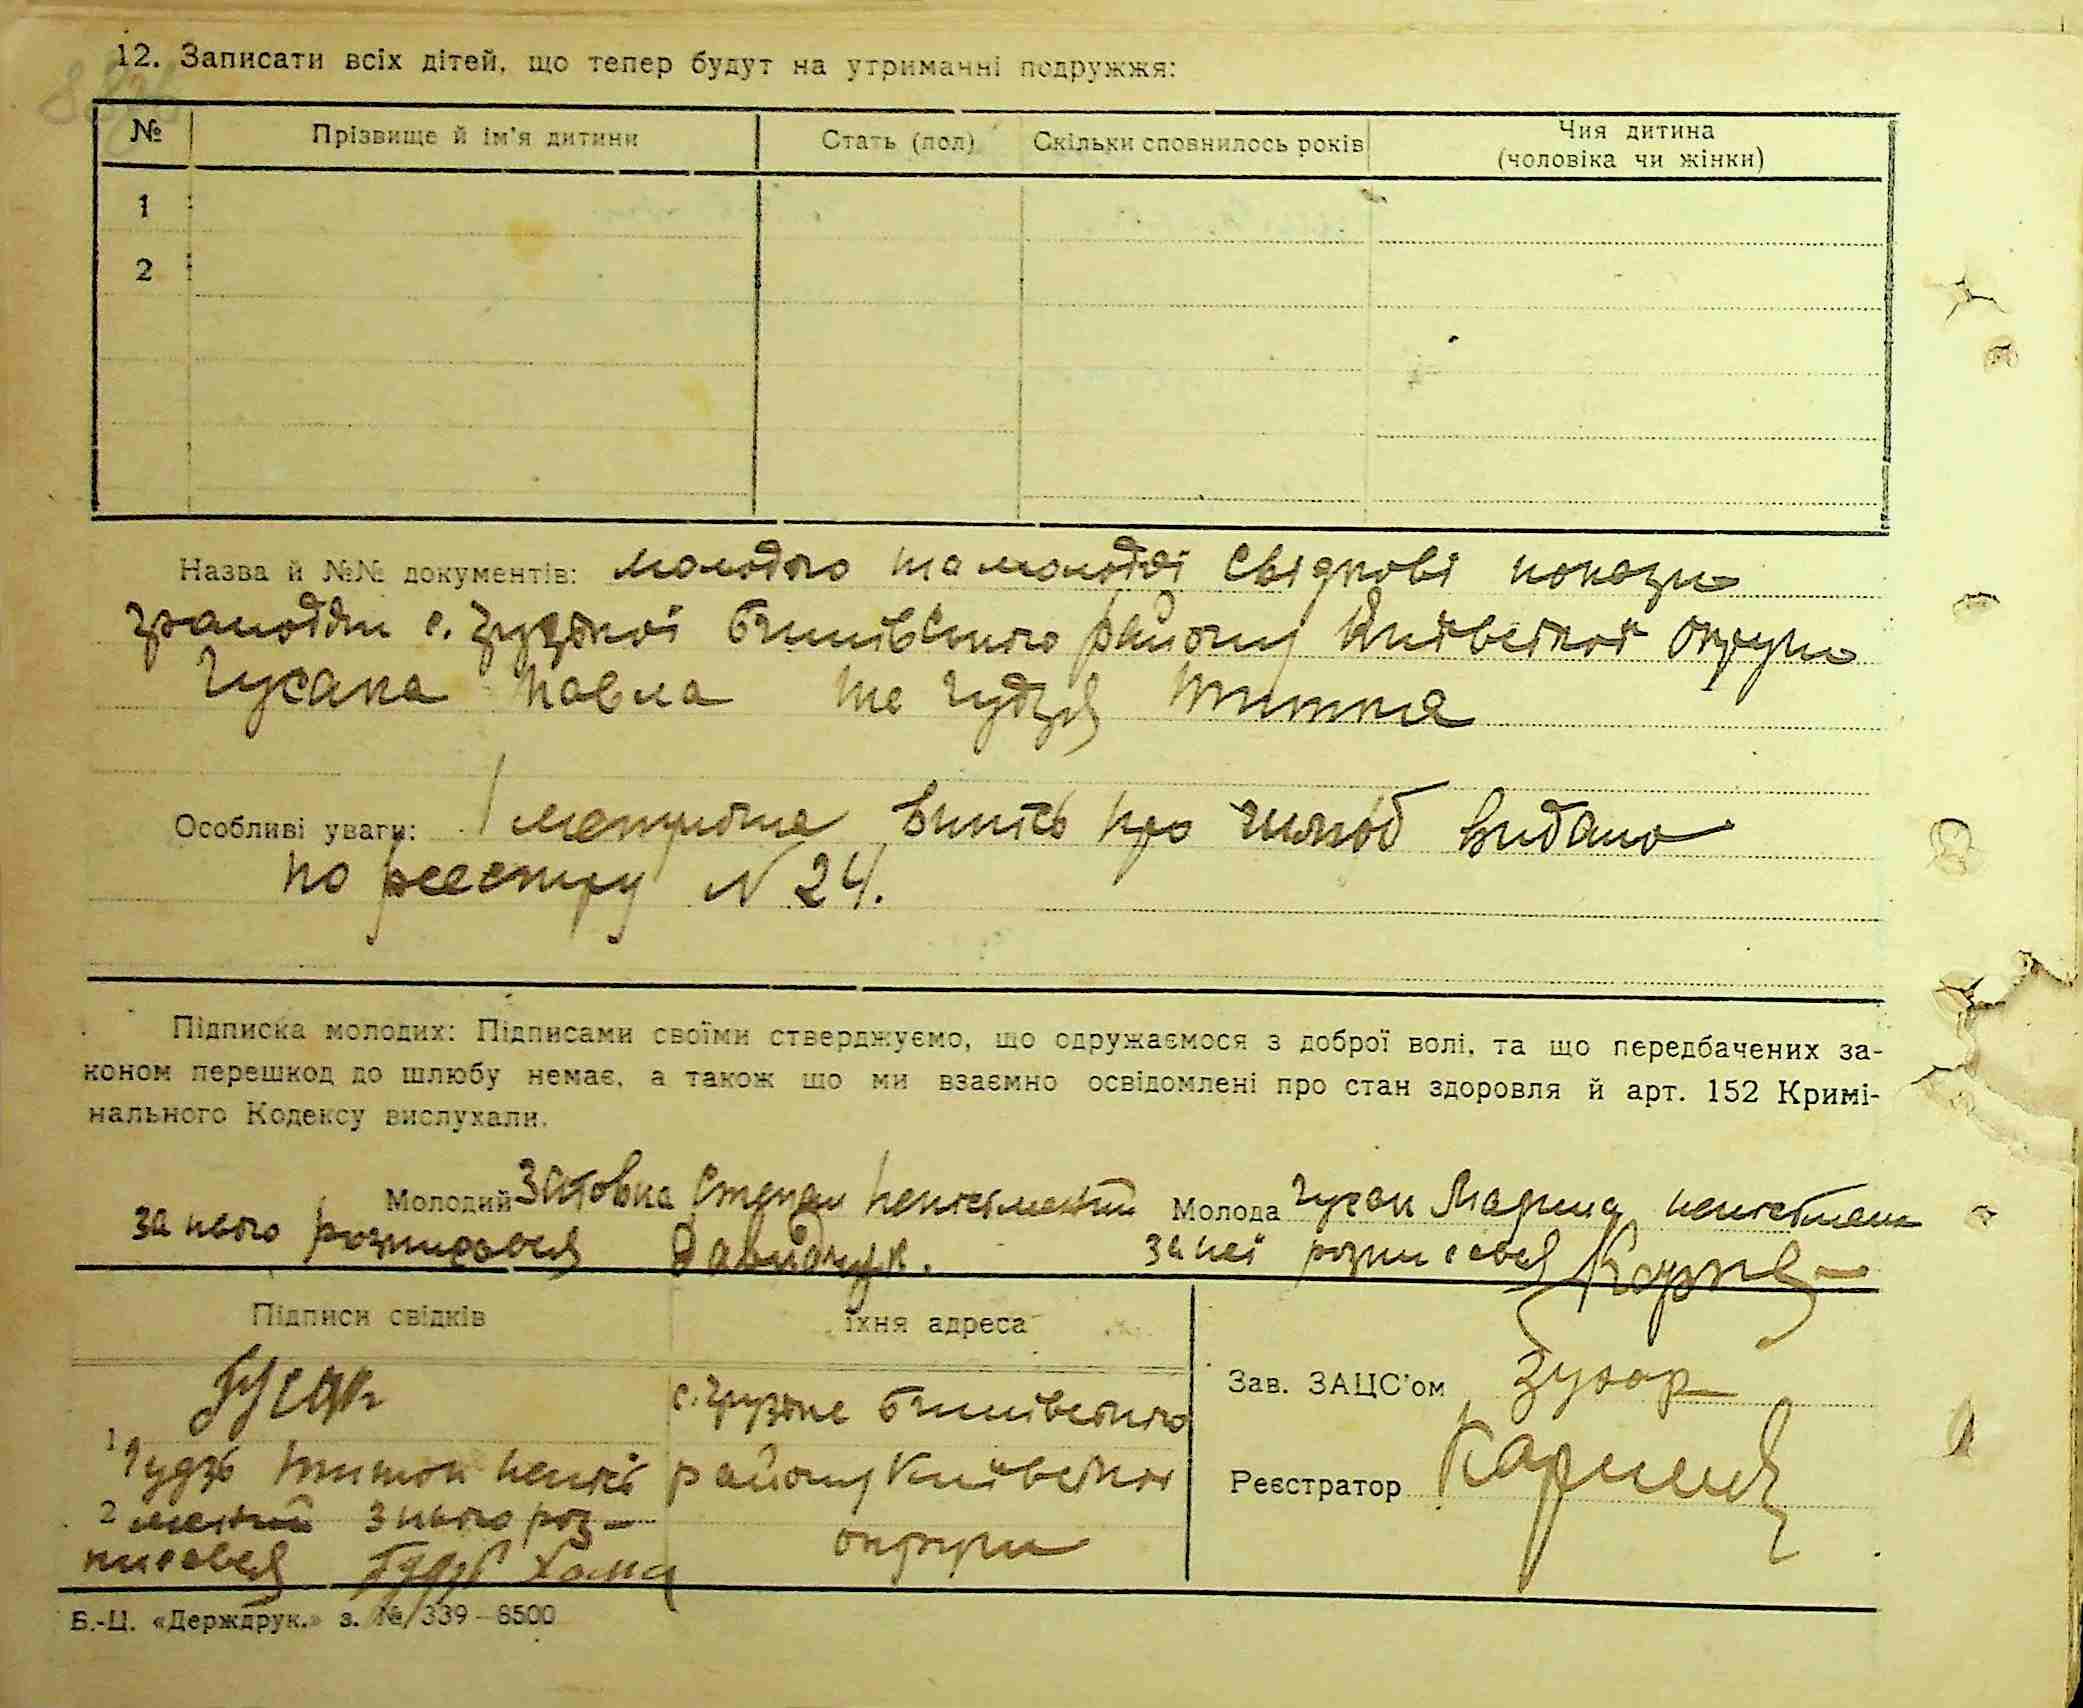 12. Записати всіх дітей, що тепер будут на утриманні подружжя:
№ Прізвище й ім'я дитини Стать (пол) Скільки сповнилось років Чия дитина (чоловіка чи жінки)
1
2
Назва й №№ документів: молодого та молодої свідкові покази
громадян с. Грузької Бишівського району Київської округи
Гусака Павла та Гудзя Тимка
Особливі уваги: метричне випись про шлюб видано
по реєстру N 24.
Підписка молодих: Підписами своїми стверджуємо, що одружаємося з доброї волі, та що передбачених за-
коном перешкод до шлюбу немає, а також що ми взаємно освідомлені про стан здоровля й арт. 152 Кримі-
нального Кодексу вислухали.
Молодий Степан неписьменний Молода Гусак Марина неписьмен
за нього розписався Давидчук. за неї розписався
Підписи свідків їхня адреса
Гусак с. Грузьке Бишівського
Зав. ЗАЦС'ом
1 Гудзь Тимош непись району Київської
Реєстратор
2 менний з нього роз-
округи
писався Гудзь Хома
Б.-Ц. «Держдрук.» з. № 339—6500